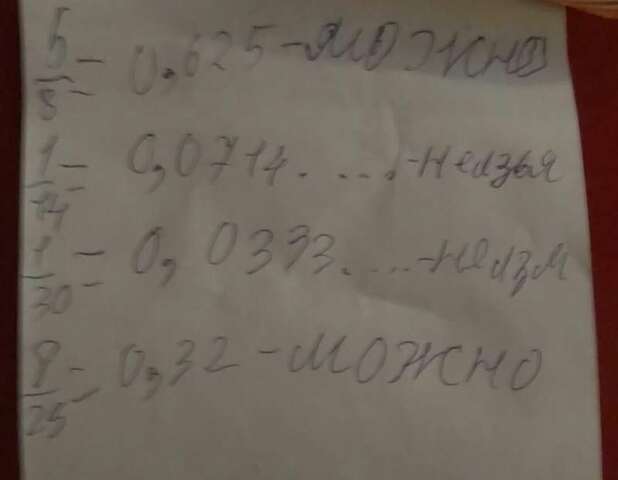 5/8 = 0,625 - можно
1/14 = 0,0714. ... - нелзья
1/30 = 0,0333. ... - нелзя
8/25 = 0,32 - можно